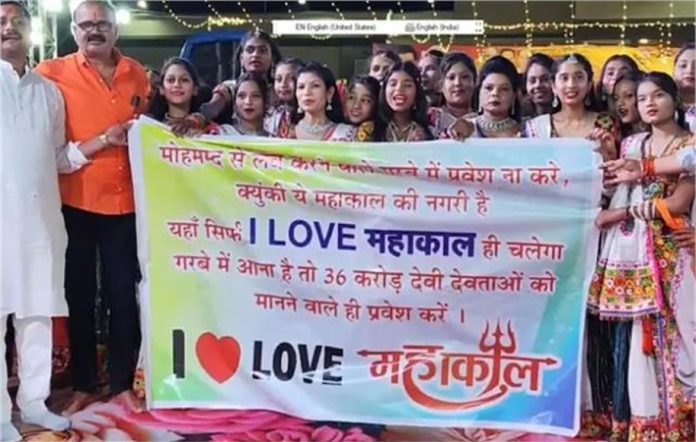 EN English (United States) English (India)
मोहमम्द से लव करने वाले गरबे में प्रवेश ना करे,
क्युंकी ये महाकाल की नगरी है
यहाँ सिर्फ I LOVE महाकाल ही चलेगा
गरबे में आना है तो 36 करोड़ देवी देवताओं को
मानने वाले ही प्रवेश करें ।
I ❤ LOVE महाकाल